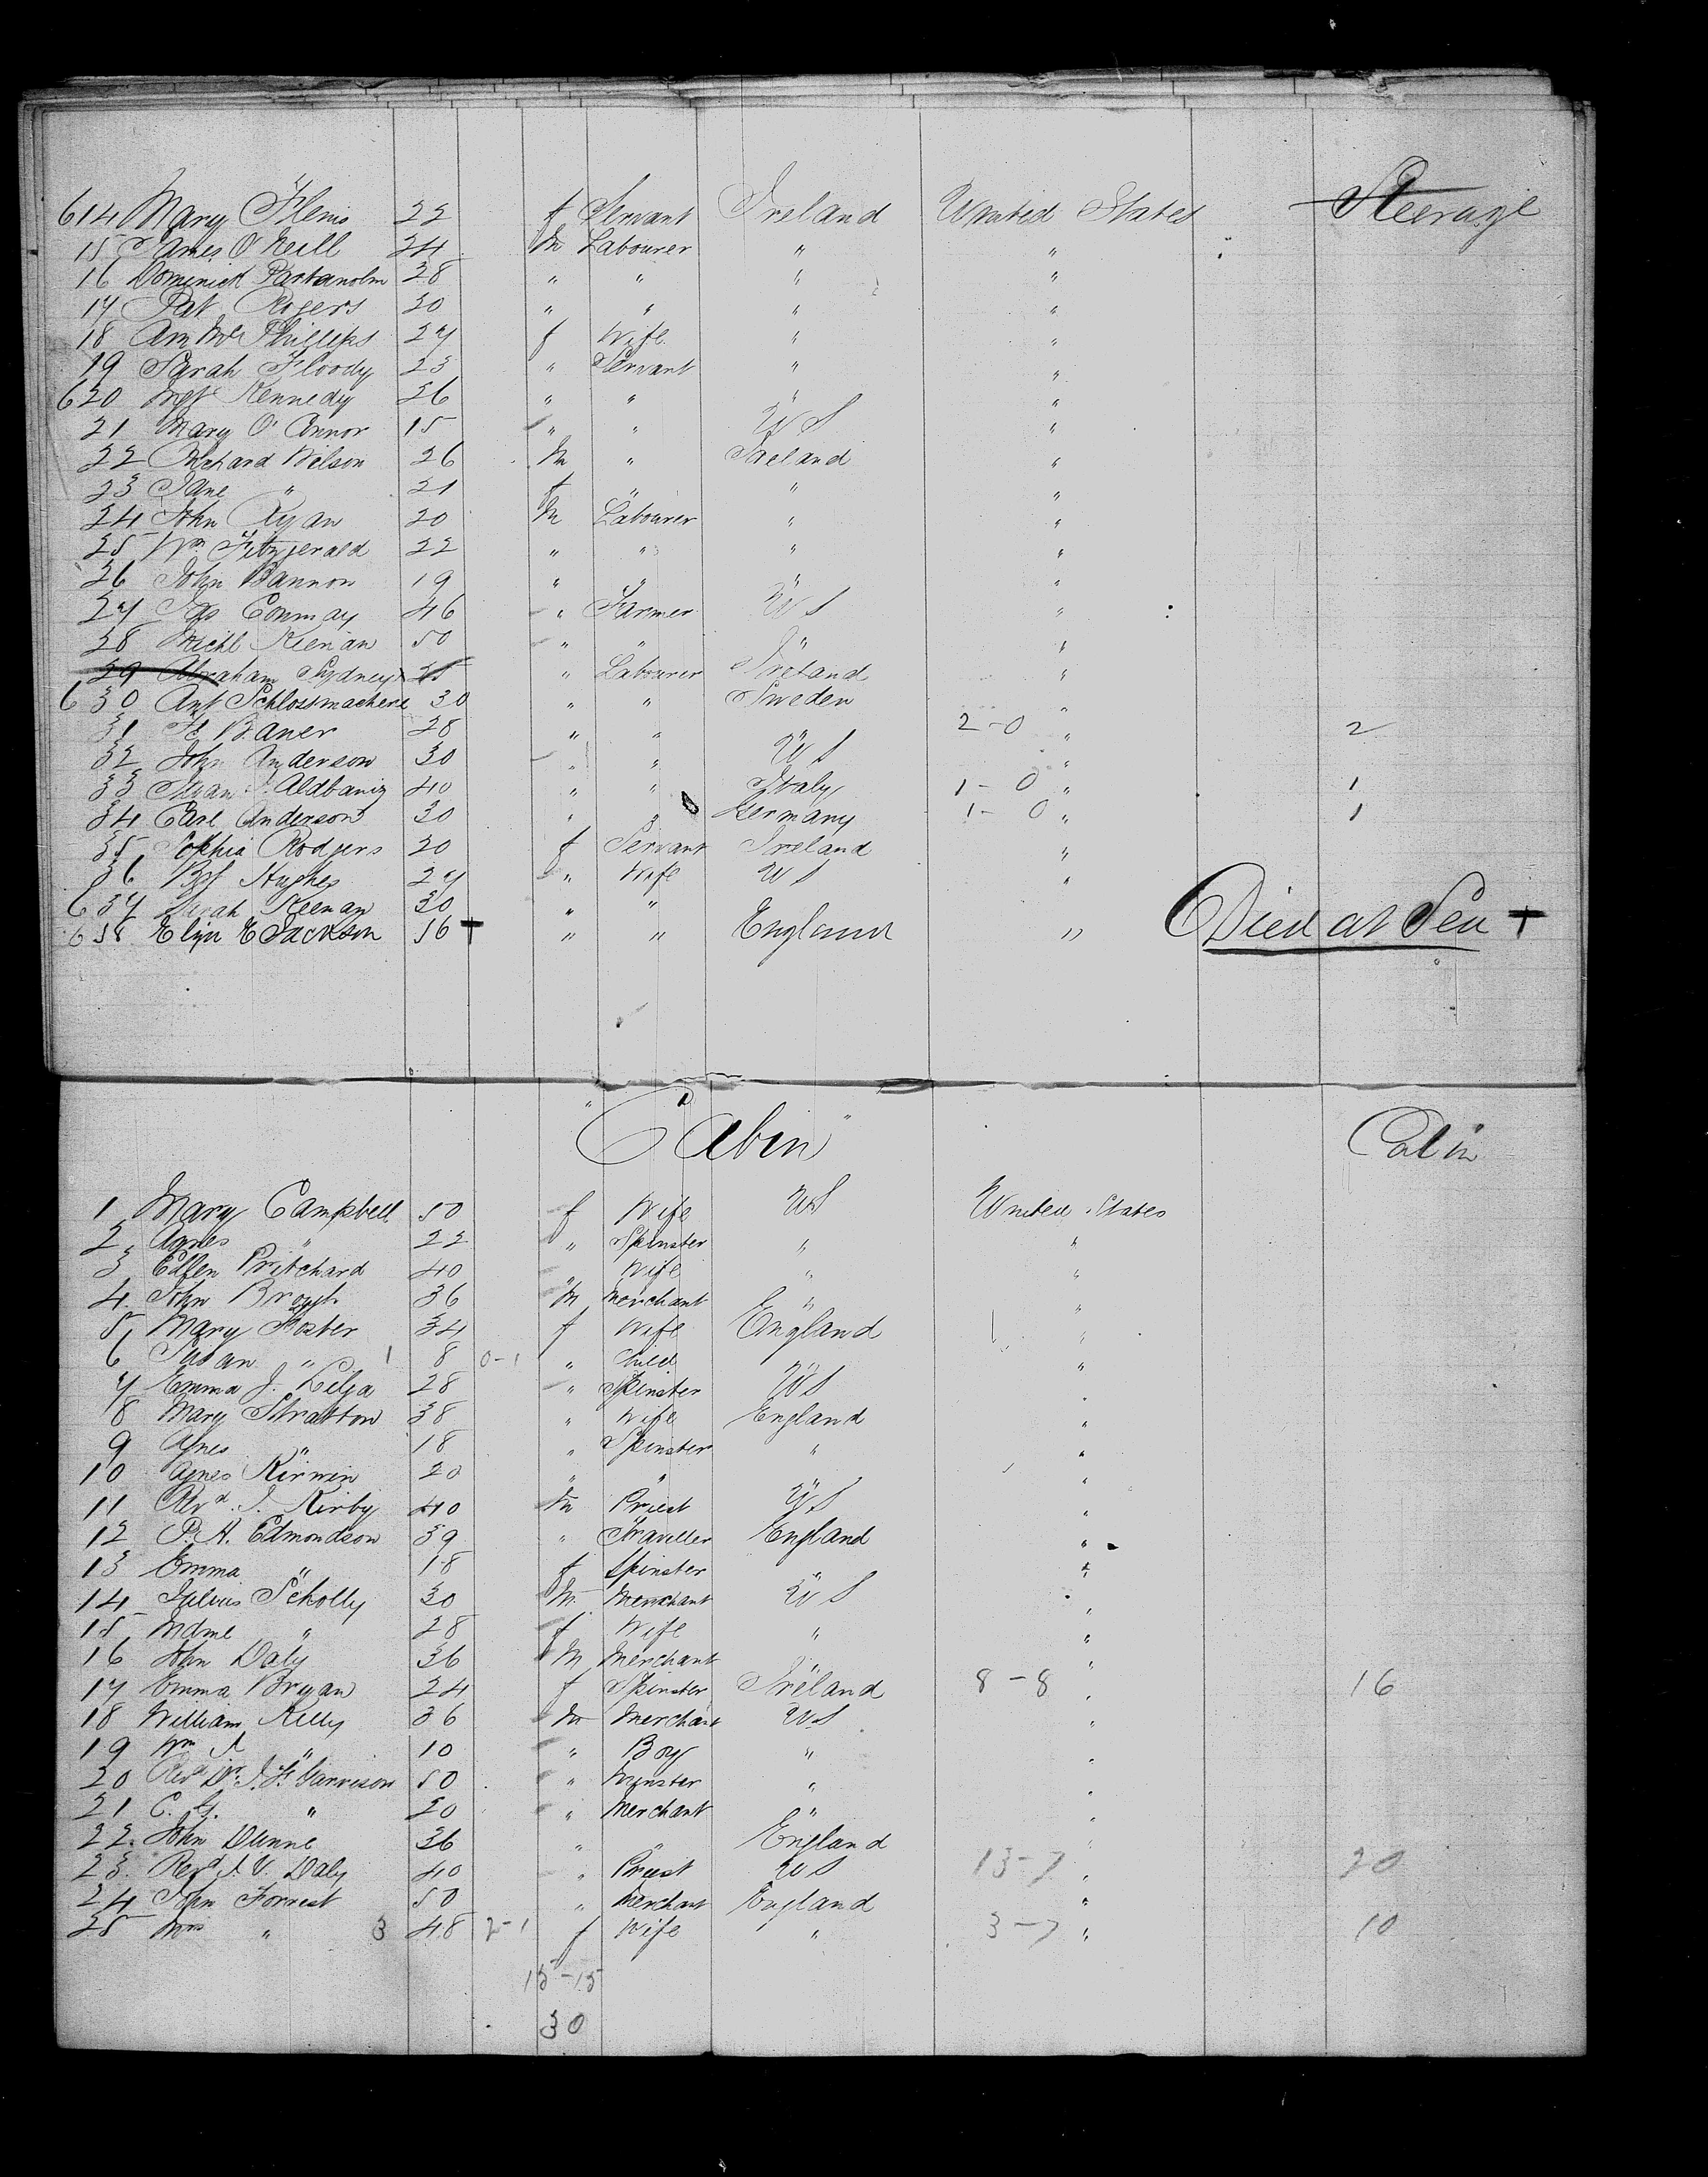 614 Mary Flenis 22 f Servant Ireland United States Steerage
15 James O'Neill 24 M Labourer " "
16 Dominick 28 " " " "
17 Pat Rogers 20 " " " "
18 Ann Phillips 27 f Wife " "
19 Sarah Floody 23 " Servant " "
620 Mgt Kennedy 26 " " " "
21 Mary O'Connor 15 " " U S "
22 Richard Wilson 26 M " Ireland "
23 Jane " 21 f " " "
24 John Ryan 20 M Labourer " "
25 Wm Fitzgerald 22 " " " "
26 John Bannon 19 " " " "
27 Jas Conway 46 " Farmer U S "
28 Michl Kienan 50 " " " "
29 Abraham Sydney 25 " Labourer Ireland "
630 Ant Schlossmachere 30 " " Sweden "
31 Baner 28 " " " 2-0 " 2
32 John Anderson 30 " " U S "
33 40 " " Italy 1-0 " 1
34 Carl Anderson 30 " " Germany 1-0 " 1
35 Sophia Rodgers 20 f Servant Ireland "
36 Bgt Hughes 27 " Wife U S "
637 Sarah Keenan 30 " " "
638 Eliza E Jackson 56 + " " England " Died at Sea +
" Cabin " Cabin
1 Mary Campbell 50 f Wife U S United States
2 Agnes " 22 " Spinster " "
3 Ellen Pritchard 40 " Wife " "
4 John Brough 36 M Merchant " "
5 Mary Foster 34 f Wife England "
6 Susan " 1 8 0-1 " Child "
7 Emma J. Lilja 28 " Spinster U S "
8 Mary Stratton 38 " Wife England "
9 Agnes " 18 " Spinster " "
10 Agnes Kirwin 20 " " "
11 Revd. J. Kirby 40 M Priest U S "
12 P. H. Edmondson 39 " Traveller England "
13 Emma " 18 f Spinster " "
14 Julius Scholly 30 M Merchant U S "
15 Mdme " 28 f Wife " "
16 John Daly 36 M Merchant "
17 Emma Bryan 24 f Spinster Ireland 8-8 " 16
18 William Kelly 36 M Merchant U S "
19 Wm J " 10 " Boy " "
20 Revd Dr. J. F. Garrison 50 " Minister " "
21 C. G. " 20 " Merchant " "
22 John Dunne 36 " " England "
23 Revd J. V. Daly 40 " Priest U S 13-7 " 20
24 John Forrest 50 " Merchant England "
25 Mrs " 3 48 2-1 f Wife " 3-7 " 10
15-15
30